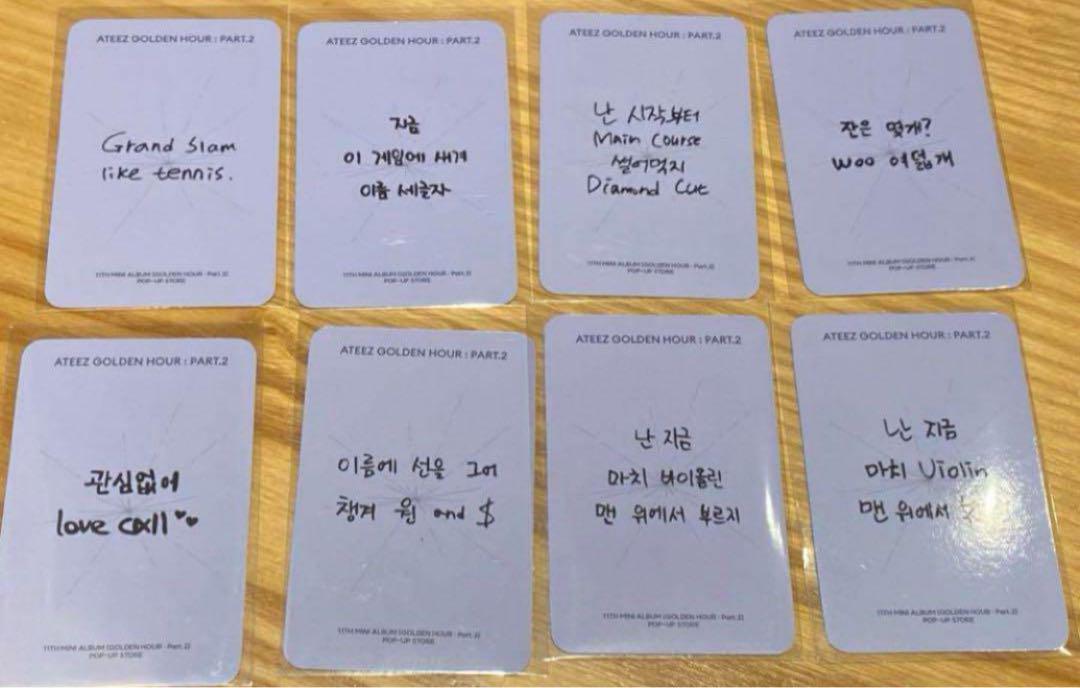 ATEEZ GOLDEN HOUR : PART.2
Grand Slam
like tennis.
11TH MINI ALBUM [GOLDEN HOUR : Part.2]
POP-UP STORE
ATEEZ GOLDEN HOUR : PART.2
지금
이 게임에 새겨
이름 세글자
11TH MINI ALBUM [GOLDEN HOUR : Part.2]
POP-UP STORE
ATEEZ GOLDEN HOUR : PART.2
난 시작부터
Main Course
썰어먹지
Diamond Cut
11TH MINI ALBUM [GOLDEN HOUR : Part.2]
POP-UP STORE
ATEEZ GOLDEN HOUR : PART.2
잔은 몇개?
woo 여덟개
11TH MINI ALBUM [GOLDEN HOUR : Part.2]
POP-UP STORE
ATEEZ GOLDEN HOUR : PART.2
관심없어
love call
11TH MINI ALBUM [GOLDEN HOUR : Part.2]
POP-UP STORE
ATEEZ GOLDEN HOUR : PART.2
이름에 선을 그어
챙겨 원 and $
11TH MINI ALBUM [GOLDEN HOUR : Part.2]
POP-UP STORE
ATEEZ GOLDEN HOUR : PART.2
난 지금
마치 바이올린
맨 위에서 부르지
11TH MINI ALBUM [GOLDEN HOUR : Part.2]
POP-UP STORE
ATEEZ GOLDEN HOUR : PART.2
난 지금
마치 Violin
맨 위에서
11TH MINI ALBUM [GOLDEN HOUR : Part.2]
POP-UP STORE